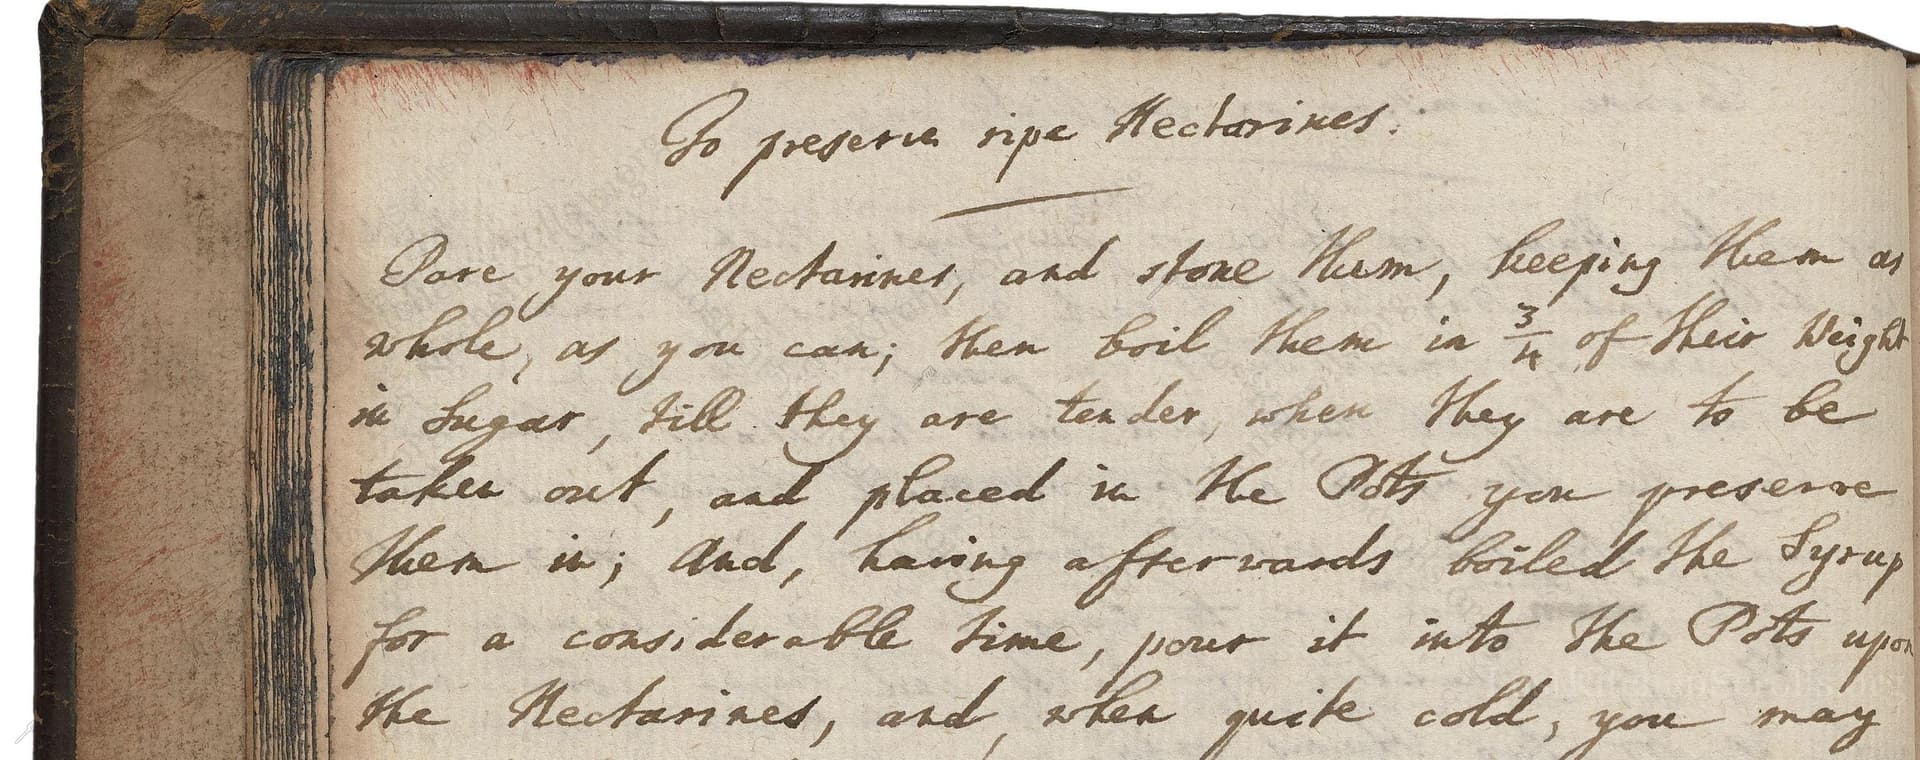 To preserve ripe Nectarines.
Pare your Nectarines, and stone them, keeping them as
whole, as you can; then boil them in 3/4 of their Weight
in Sugar, till they are tender, when they are to be
taken out, and placed in the Pots you preserve
them in; And, having afterwards boiled the Syrup
for a considerable time, pour it into the Pots upon
the Nectarines, and, when quite cold, you may